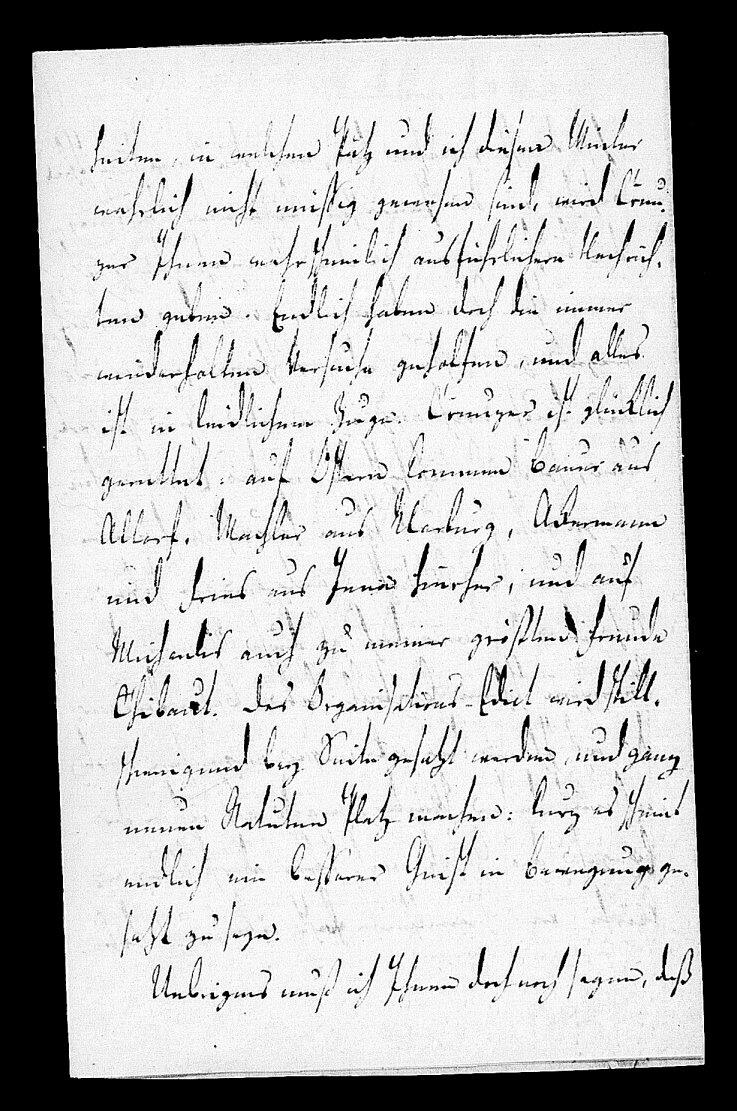 heiten, in welchem Pütz und ich diesen Winter
wahrlich nicht müssig gewesen sind, wird Creu¬
zer Ihnen wahrscheinlich ausführlichere Nachrich¬
ten geben. Endlich haben doch die immer
wiederholten Versuche geholfen, und alles
ist in leidlichem Zuge. Creuzer ist glücklich
gerettet: auf Ostern kommen Bauer aus
Altorf, Wachler aus Marburg, Ackermann
und Fries aus Jena hierher, und auf
Michaelis auch zu meiner größten Freude
Thibaut. Das Organisations-Edict wird still¬
schweigend bey Seite gesetzt werden, und ganz
neuen Statuten Platz machen: kurz es scheint
endlich ein besserer Geist in Bewegung ge¬
setzt zu seyn.
Uebrigens muß ich Ihnen doch noch sagen, daß